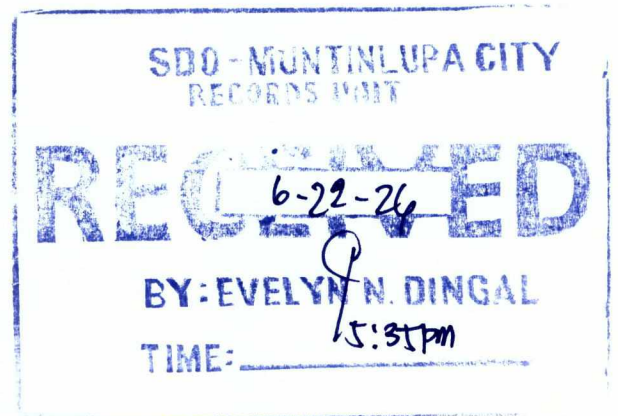 SDO - MUNTINLUPA CITY
RECORDS UNIT
RECEIVED
6-22-26
BY: EVELYN N. DINGAL
5:35pm
TIME: